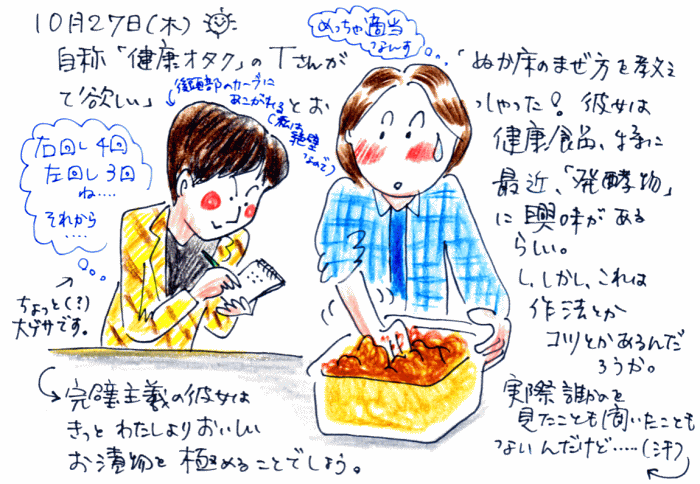 10月27日(木)
自称「健康オタク」のTさんが
「ぬか床のまぜ方を教え
て欲しい」とおっしゃった!彼女は
健康食品、特に
最近、「発酵物」
に興味がある
らしい。
し、しかし、これは
作法とか
コツとかあるんだ
ろうか。
実際誰かのを
見たことも聞いたことも
ないんだけど……(汗)
めっちゃ適当
なんす
後頭部のカーブに
あこがれる
(私は
絶壁
なので)
右回し4回
左回し3回
ね……
それから
……
ちょっと(?)
大ゲサです。
完璧主義の彼女は
きっとわたしよりおいしい
お漬物を極めることでしょう。